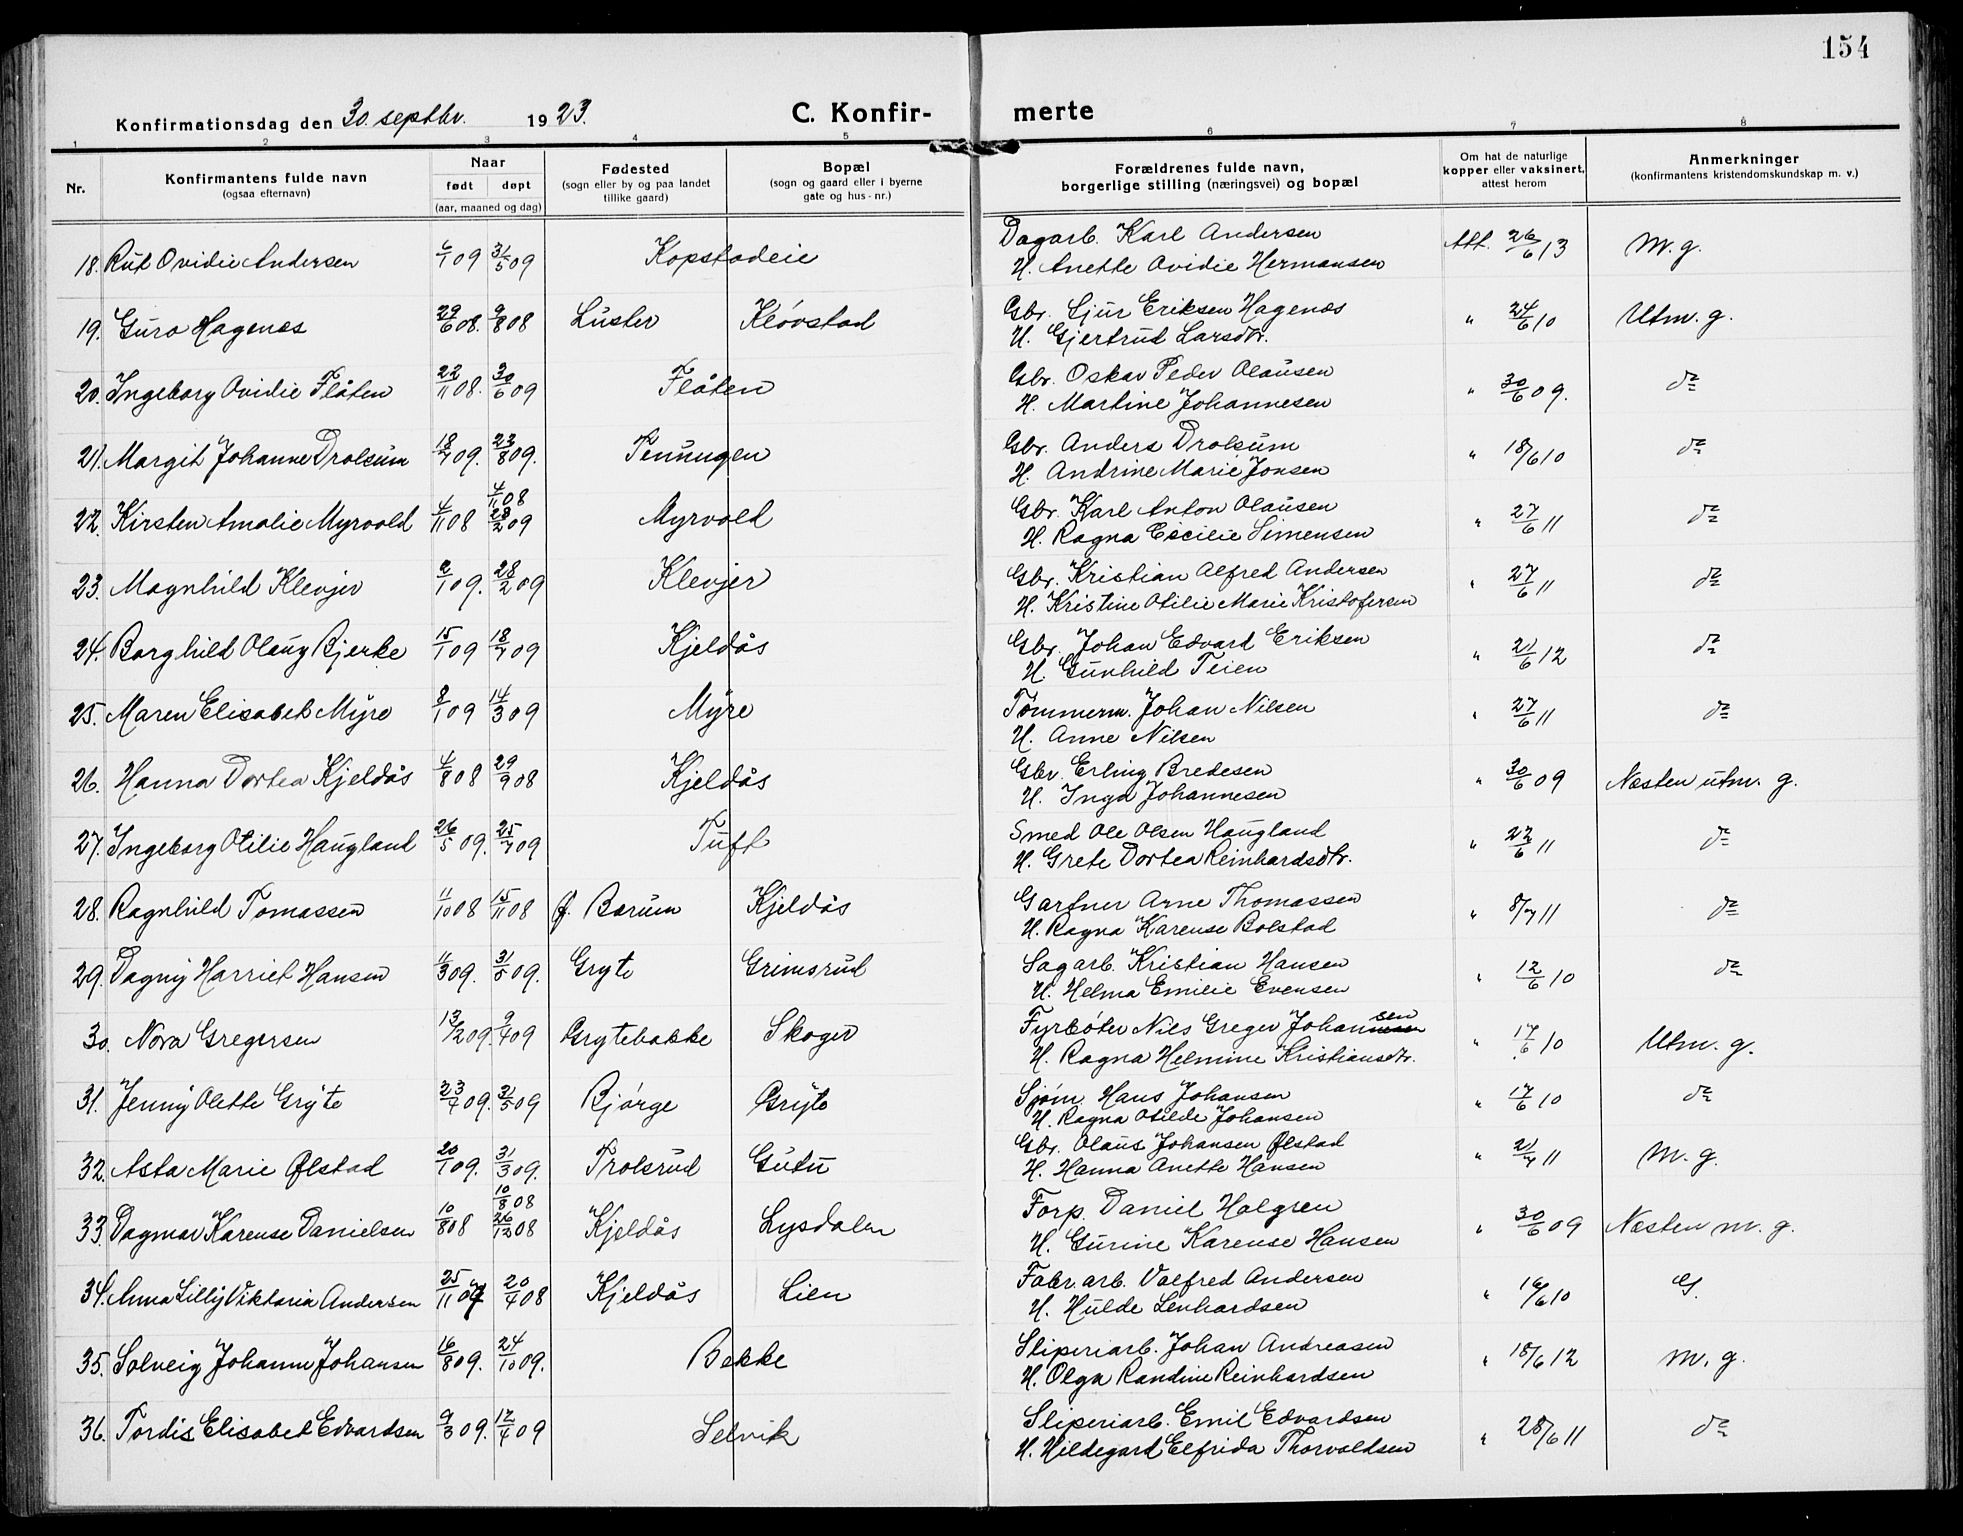 154
Konfirmationsdag den 30. septbr. 1923. C. Konfir- merte
1 2 3 4 5 6 7 8
Nr.
Konfirmantens fulde navn
(ogsaa efternavn)
Naar
født døpt
(aar, maaned og dag)
Fødested
(sogn eller by og paa landet
tillike gaard)
Bopæl
(sogn og gaard eller i byerne
gate og hus-nr.)
Forældrenes fulde navn,
borgerlige stilling (næringsvei) og bopæl
Om hat de naturlige
kopper eller vaksinert,
attest herom
Anmerkninger
(konfirmantens kristendomskundskap m. v.)
18. Rut Ovidie Andersen 6/1 09 31/5 09 Kopstadeie Dagarb. Karl Andersen Att. 26/6 13 M. g.
H. Anette Ovidie Hermansen
19. Guro Hagenæs 29/6 08. 9/8 08 Luster Kløvstad Gbr. Sjur Eriksen Hagenæs " 24/6 10 Utm. g.
H. Gjertrud Larsdtr.
20. Ingeborg Ovidie Flåten 22/11 08. 30/6 09 Flåten Gbr. Oskar Peder Olausen " 30/6 09. do
H. Martine Johannesen
21. Margit Johanne Drolsum 18/7 09. 23/8 09. Tenungen Gbr. Anders Drolsum " 18/6 10 do
H. Andrine Marie Jonsen
22. Kirsten Amalie Myrvold 4/11 08 4/11 08 28/2 09 Myrvold Gbr. Karl Anton Olausen " 27/6 11 do
H. Ragna Cecilie Simensen
23. Magnhild Klevjer 2/1 09. 28/2 09 Klevjer Gbr. Kristian Alfred Andersen " 27/6 11 do
H. Kristine Otilie Marie Kristofersen
24. Borghild Olaug Bjerke 15/1 09 18/7 09 Kjeldås Gbr. Johan Edvard Eriksen " 21/6 12 do
H. Gunhild Teien
25. Maren Elisabet Myre 8/1 09 14/3 09 Myre Tømmerm. Johan Nilsen " 27/6 11 do
H. Anne Nilsen
26. Hanna Dortea Kjeldås 4/8 08 29/9 08 Kjeldås Gbr. Erling Bredesen " 30/6 09 Næsten utm. g.
H. Inga Johannesen
27. Ingeborg Otilie Haugland 26/5 09. 25/7 09 Tuft Smed Ole Olsen Haugland " 22/6 11 do
H. Grete Dortea Reinhardsdtr.
28. Ragnhild Tomassen 11/10 08 15/11 08 f. Bærum Kjeldås Gartner Arne Thomassen " 8/7 11 do
H. Ragna Karense Bolstad
29. Dagny Harriet Hansen 11/3 09. 31/5 09. Gryte Grimsrud Sagarb. Kristian Hansen " 12/6 10 do
H. Helma Emilie Evensen
30. Nora Gregersen 13/12 09. 9/4 09 Grytebakke Skoger Fyrbøter Nils Greger Johansen " 17/6 10 Utm. g.
H. Ragna Helmine Kristiansdtr.
31. Jenny Olette Gryte 23/4 09. 31/5 09 Bjørge Gryte Sjøm. Hans Johansen " 17/6 10 do
H. Ragna Otilde Johansen
32. Asta Marie Ølstad 20/1 09. 31/3 09. Trolsrud Gutu Gbr. Olaus Johansen Ølstad " 21/7 11 M. g.
H. Hanna Anette Hansen
33. Dagmar Karense Danielsen 10/8 08 10/8 08 26/12 08 Kjeldås Lysdalen Forp. Daniel Holgren " 30/6 09 Næsten m. g.
H. Gurine Karense Hansen
34. Anna Lilly Viktoria Andersen 25/11 07 20/4 08 Kjeldås Lien Fabr.arb. Valfred Andersen " 16/6 10 G.
H. Hulde Lenhardsen
35. Solveig Johanne Johansen 16/8 09. 24/10 09. Bekke Sliperiarb. Johan Andreasen " 18/6 12 M. g.
H. Olga Randine Reinhardsen
36. Tordis Elisabet Edvardsen 9/3 09. 12/4 09 Selvik Sliperiarb. Emil Edvardsen " 28/6 11 do
H. Hildegard Elfrida Thorvaldsen